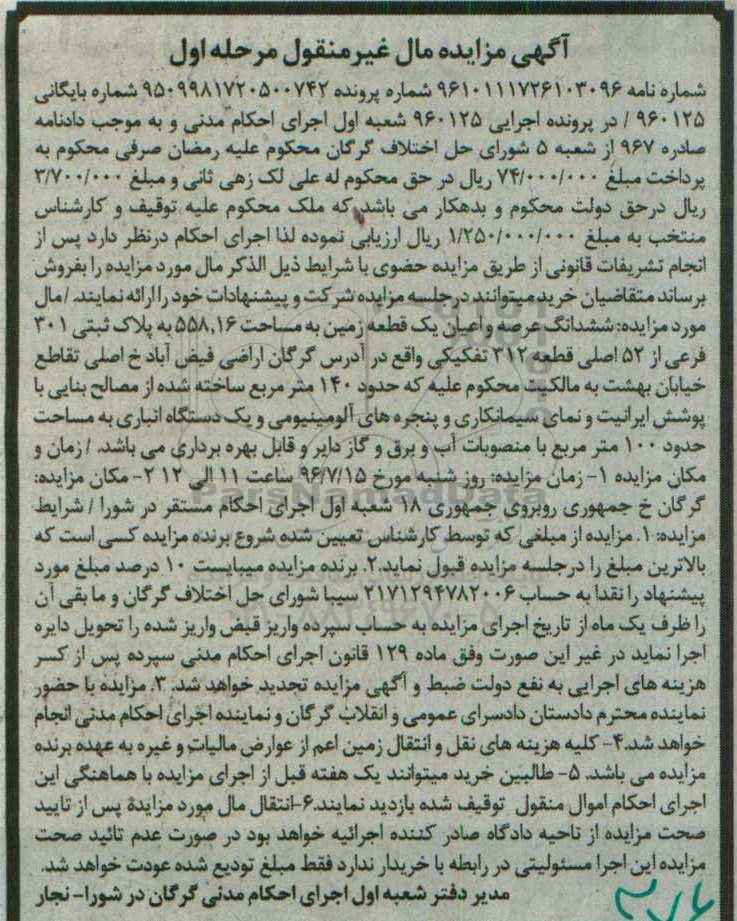 آگهی مزایده مال غیرمنقول مرحله اول
شماره نامه ۹۶۱۰۱۱۱۷۲۶۱۰۳۰۹۶ شماره پرونده ۹۵۰۹۹۸۱۷۲۰۵۰۰۷۴۲ شماره بایگانی
۹۶۰۱۲۵ / در پرونده اجرایی ۹۶۰۱۲۵ شعبه اول اجرای احکام مدنی و به موجب دادنامه
صادره ۹۶۷ از شعبه ۵ شورای حل اختلاف گرگان محکوم علیه رمضان صرفی محکوم به
پرداخت مبلغ ۷۴/۰۰۰/۰۰۰ ریال در حق محکوم له علی لک زهی ثانی و مبلغ ۳/۷۰۰/۰۰۰
ریال درحق دولت محکوم و بدهکار می باشد که ملک محکوم علیه توقیف و کارشناس
منتخب به مبلغ ۱/۲۵۰/۰۰۰/۰۰۰ ریال ارزیابی نموده لذا اجرای احکام درنظر دارد پس از
انجام تشریفات قانونی از طریق مزایده حضوی با شرایط ذیل الذکر مال مورد مزایده را بفروش
برساند متقاضیان خرید میتوانند درجلسه مزایده شرکت و پیشنهادات خود را ارائه نمایند. / مال
مورد مزایده: ششدانگ عرصه و اعیان یک قطعه زمین به مساحت ۵۵۸,۱۶ به پلاک ثبتی ۳۰۱
فرعی از ۵۲ اصلی قطعه ۳۱۲ تفکیکی واقع در آدرس گرگان اراضی فیض آباد خ اصلی تقاطع
خیابان بهشت به مالکیت محکوم علیه که حدود ۱۴۰ متر مربع ساخته شده از مصالح بنایی با
پوشش ایرانیت و نمای سیمانکاری و پنجره های آلومینیومی و یک دستگاه انباری به مساحت
حدود ۱۰۰ متر مربع با منصوبات آب و برق و گاز دایر و قابل بهره برداری می باشد. / زمان و
مکان مزایده ۱- زمان مزایده: روز شنبه مورخ ۹۶/۷/۱۵ ساعت ۱۱ الی ۱۲ ۲- مکان مزایده:
گرگان خ جمهوری روبروی جمهوری ۱۸ شعبه اول اجرای احکام مستقر در شورا / شرایط
مزایده: ۱. مزایده از مبلغی که توسط کارشناس تعیین شده شروع برنده مزایده کسی است که
بالاترین مبلغ را درجلسه مزایده قبول نماید.۲. برنده مزایده میبایست ۱۰ درصد مبلغ مورد
پیشنهاد را نقدا به حساب ۲۱۷۱۲۹۴۷۸۲۰۰۶ سیبا شورای حل اختلاف گرگان و ما بقی آن
را ظرف یک ماه از تاریخ اجرای مزایده به حساب سپرده واریز قبض واریز شده را تحویل دایره
اجرا نماید در غیر این صورت وفق ماده ۱۲۹ قانون اجرای احکام مدنی سپرده پس از کسر
هزینه های اجرایی به نفع دولت ضبط و آگهی مزایده تجدید خواهد شد. ۳. مزایده با حضور
نماینده محترم دادستان دادسرای عمومی و انقلاب گرگان و نماینده اجرای احکام مدنی انجام
خواهد شد.۴- کلیه هزینه های نقل و انتقال زمین اعم از عوارض مالیات و غیره به عهده برنده
مزایده می باشد. ۵- طالبین خرید میتوانند یک هفته قبل از اجرای مزایده با هماهنگی این
اجرای احکام اموال منقول توقیف شده بازدید نمایند.۶-انتقال مال مورد مزایده پس از تایید
صحت مزایده از ناحیه دادگاه صادر کننده اجرائیه خواهد بود در صورت عدم تائید صحت
مزایده این اجرا مسئولیتی در رابطه با خریدار ندارد فقط مبلغ تودیع شده عودت خواهد شد.
مدیر دفتر شعبه اول اجرای احکام مدنی گرگان در شورا- نجار
ParsNamadData